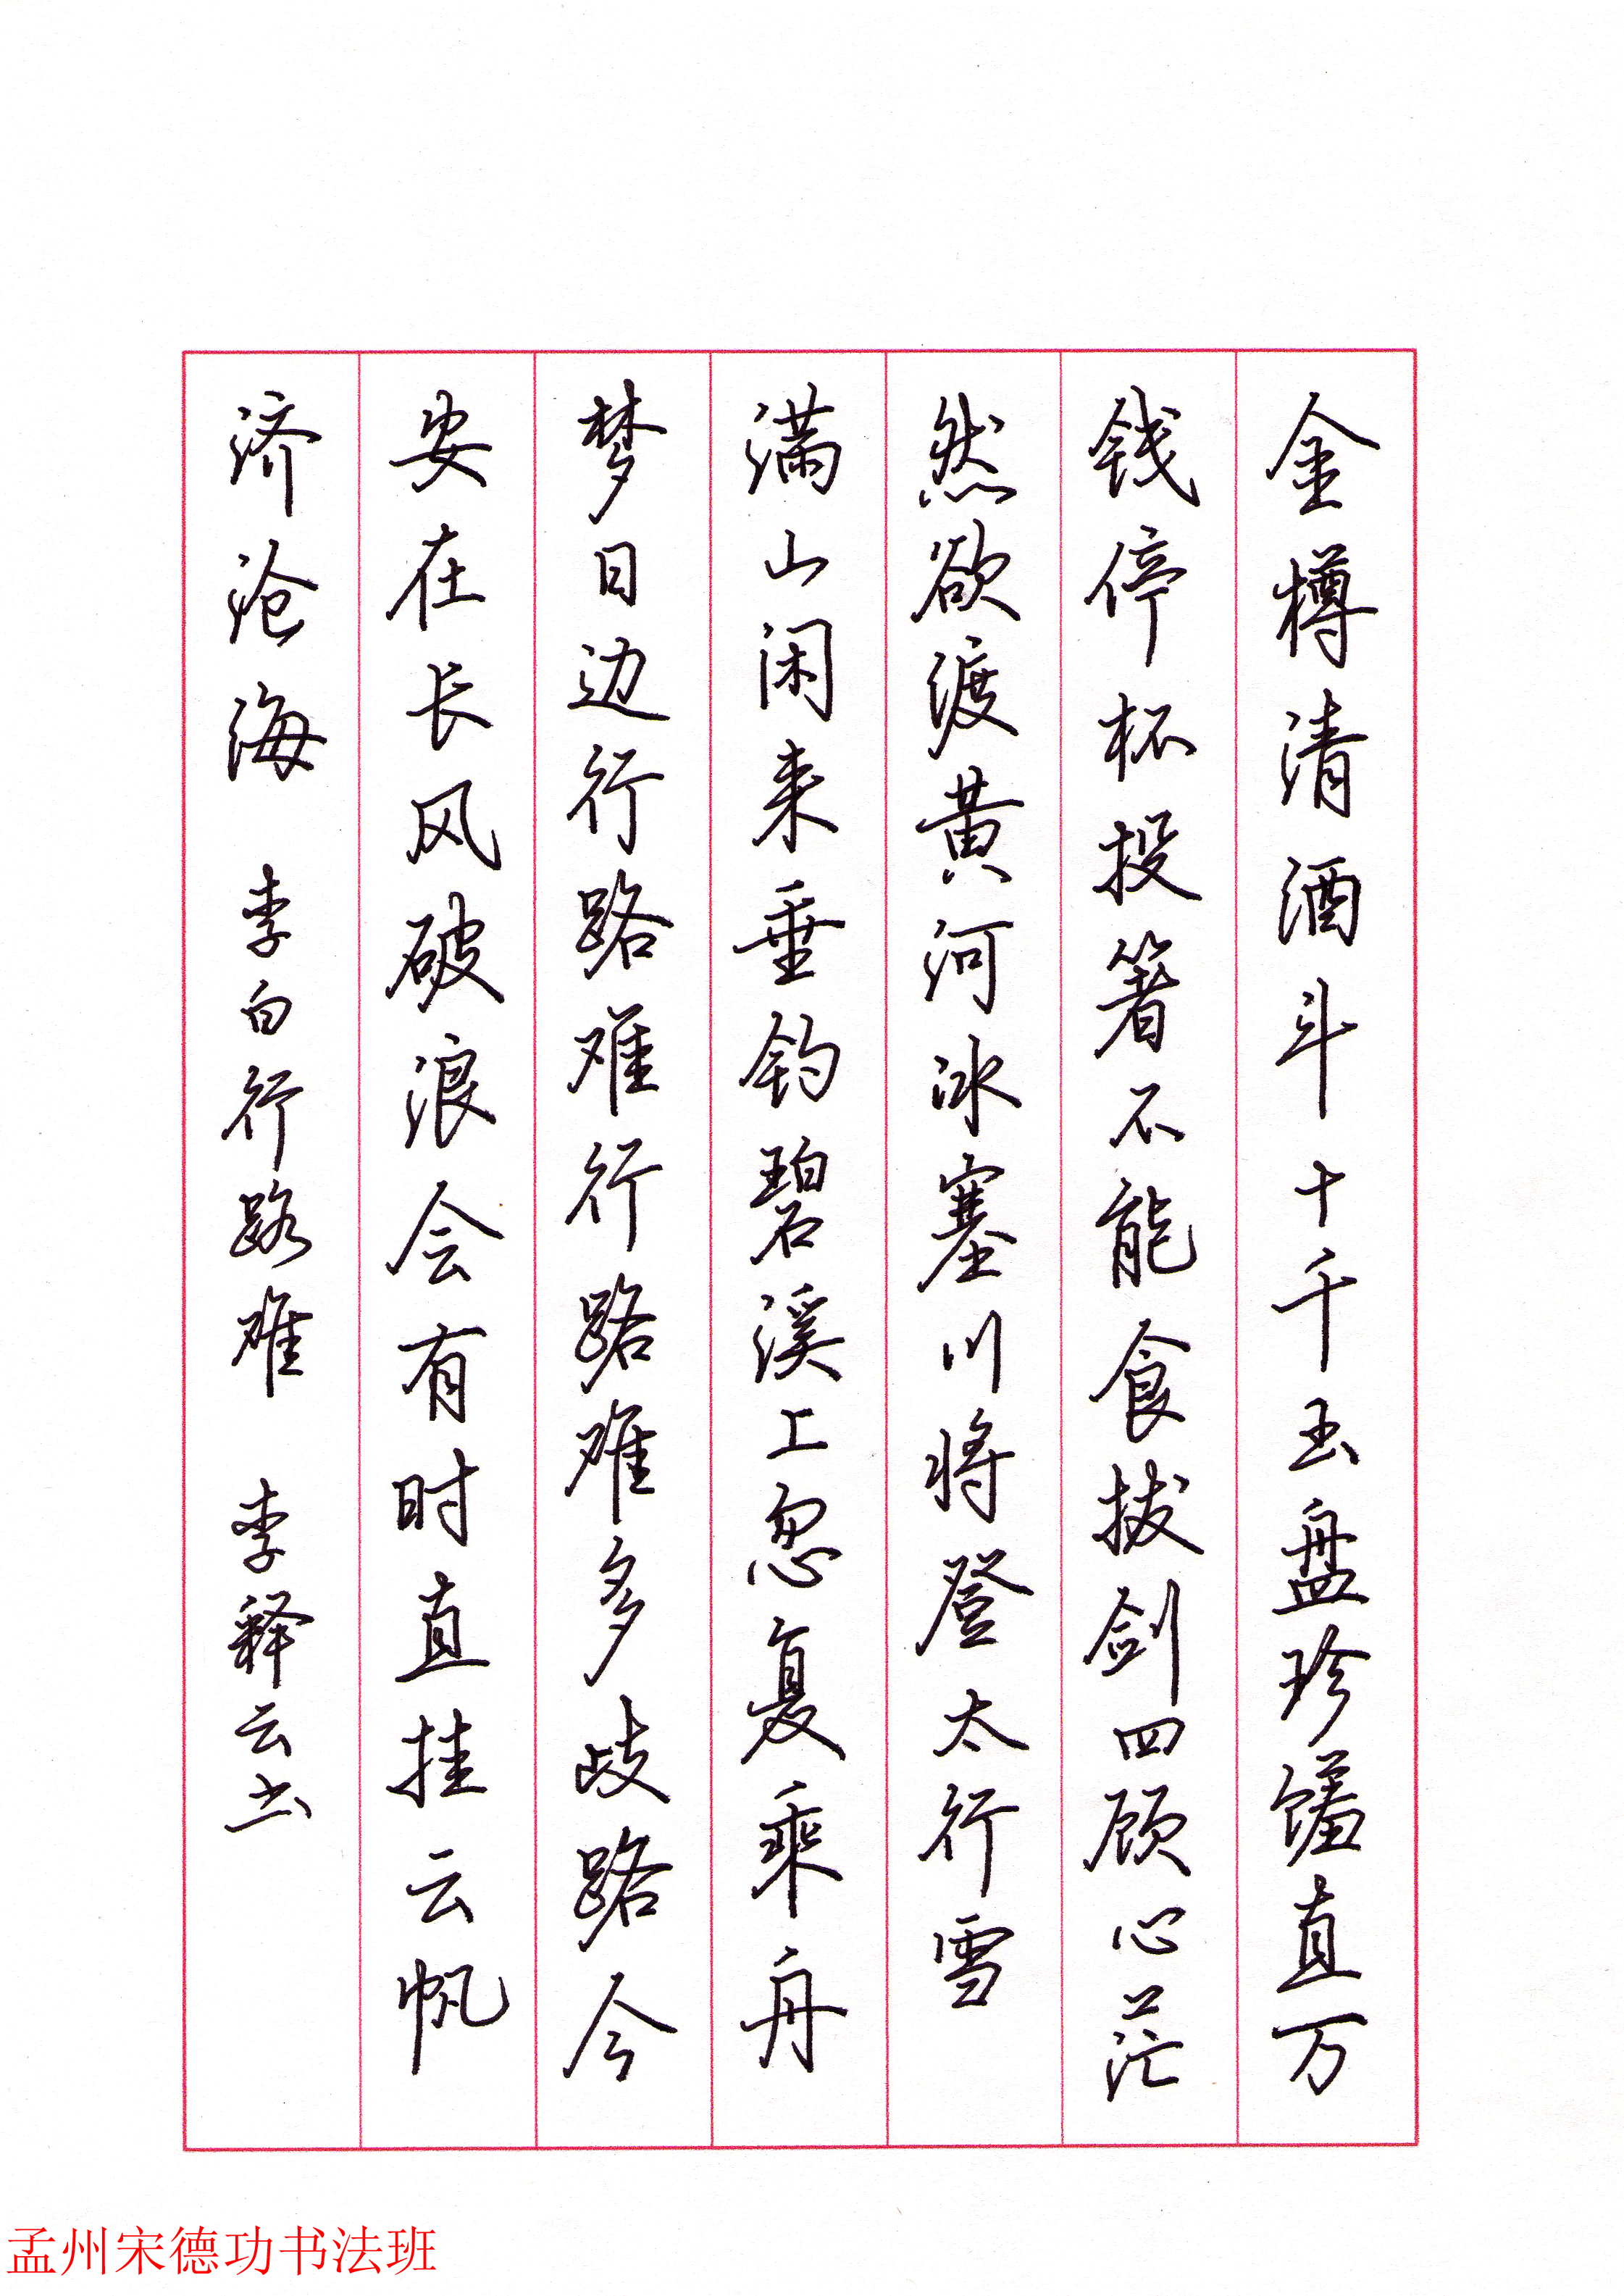 金樽清酒斗十千玉盘珍馐直万
钱停杯投箸不能食拔剑四顾心茫
然欲渡黄河冰塞川将登太行雪
满山闲来垂钓碧溪上忽复乘舟
梦日边行路难行路难多歧路今
安在长风破浪会有时直挂云帆
济沧海 李白行路难 李释云书
孟州宋德功书法班